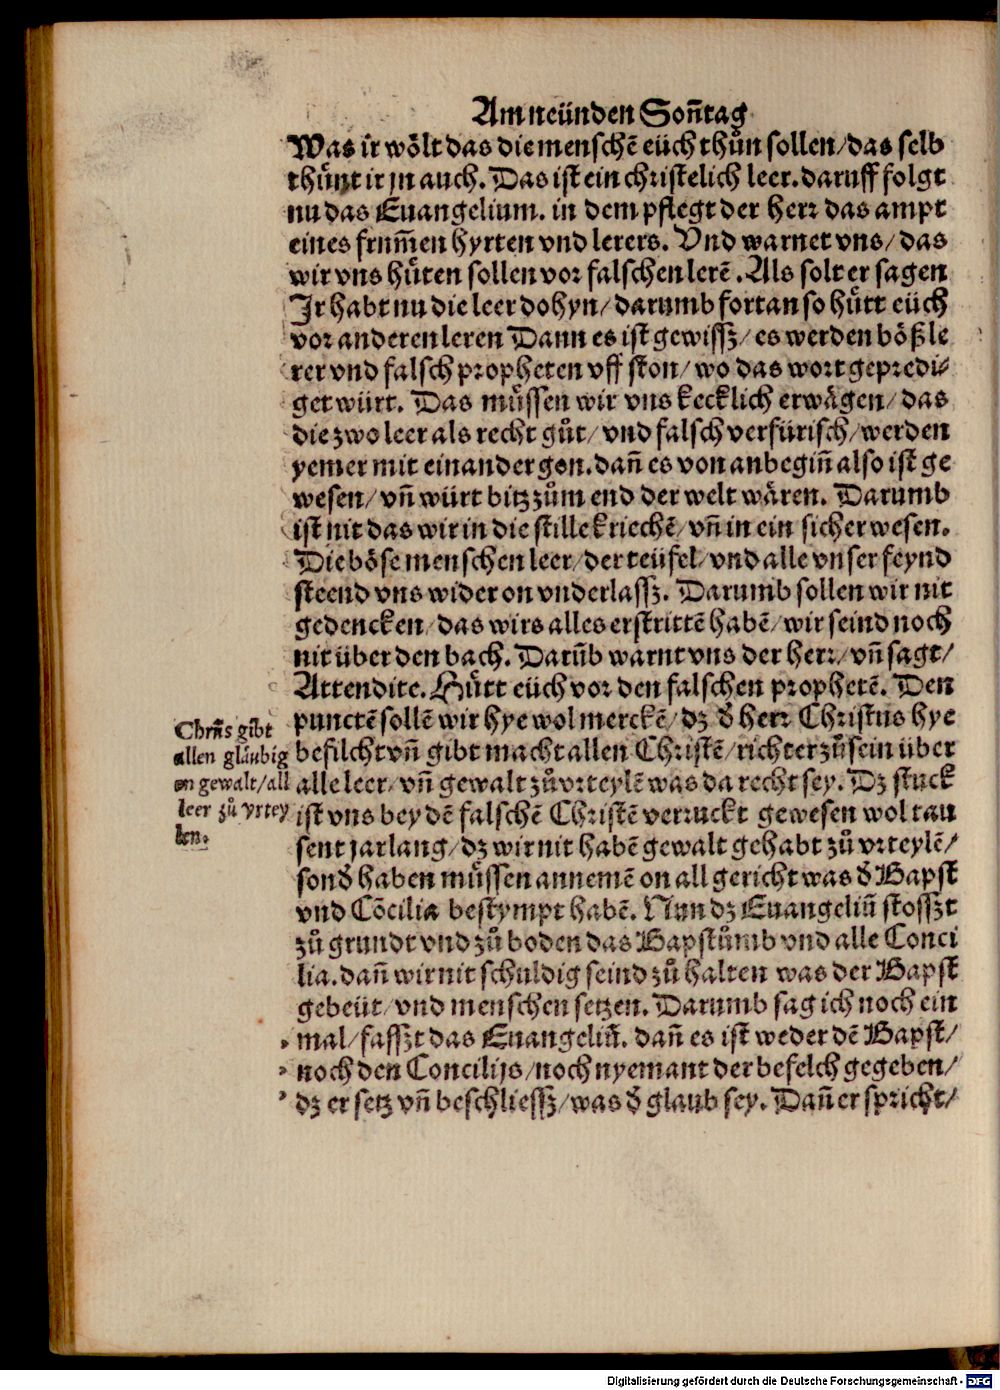 Am neünden Soñtag
Was ir wo̊lt das die menschē eüch thůn sollen/das selb
thůnt ir jn auch. Das ist ein christelich leer. daruff folgt
nu das Euangelium. in dem pflegt der herr das ampt
eines frum̃en hyrten vnd lerers. Vnd warnet vns/das
wir vns hüten sollen vor falschen lerē. Als solt er sagen
Ir habt nu die leer dohyn/darumb fortan so hütt eüch
vor anderen leren Dann es ist gewissz/es werden bößle
rer vnd falsch propheten vff ston/wo das wort gepredi⸗
get würt. Das müssen wir vns kecklich erwägen/das
die zwo leer als recht gůt/vnd falsch verfürisch/werden
yemer mit einander gon. dañ es von anbegiñ also ist ge
wesen/vñ würt bitz zům end der welt wären. Darumb
ist nit das wir in die stille kriechē/vñ in ein sicher wesen.
Die böse menschen leer/der teüfel/vnd alle vnser feynd
steend vns wider on vnderlassz. Darumb sollen wir nit
gedencken/das wirs alles erstrittē habē/wir seind noch
nit über den bach. Darūb warnt vns der herr/vñ sagt/
Attendite. Hütt eüch vor den falschen prophetē. Den
punctē sollē wir hye wol merckē/dz d̕ herr Christus hye
befilcht vñ gibt macht allen Christē/richter zů sein über
alle leer/vñ gewalt zů vrteylē was da recht sey. Dz stuck
ist vns bey dē falschē Christē verruckt gewesen wol tau
sent jar lang/dz wir nit habē gewalt gehabt zů vrteylē/
sond̕ haben müssen annemē on all gericht was d̕ Bapst
vnd Cōcilia bestympt habē. Nun dz Euangeliū stosszt
zů grundt vnd zů boden das Bapstůmb vnd alle Conci
lia. dañ wir nit schuldig seind zů halten was der Bapst
gebeüt/vnd menschen setzen. Darumb sag ich noch ein
mal/fasszt das Euangeliū. dañ es ist weder dē Bapst/
noch den Concilijs/noch nyemant der befelch gegeben/
dz er setz vñ beschliessz/was d̕ glaub sey. Dañ er spricht/
Chrūs gibt
allen gläubig
en gewalt/all
leer zů vrtey
len.
Digitalisierung gefördert durch die Deutsche Forschungsgemeinschaft - DFG